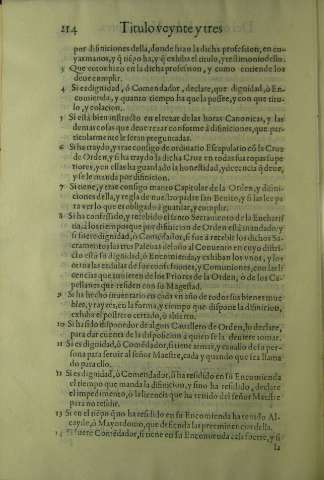 214 Titulo veynte y tres
por difiniciones della, donde hizo la dicha profession, en cu-
yas manos, y q̃ tiẽpo ha, y q̃ exhiba el titulo, y testimonio dello.
3 Que votos hizo en la dicha profession, y como entiende los
deue cumplir.
4 Si es dignidad, ò Comendador, declare, que dignidad, ò En-
comienda, y quanto tiempo ha que la possee, y con que titu-
lo, y colacion.
5 Si està bien instructo en el rezar de las horas Canonicas, y las
demas cosas que deue rezar conforme à difiniciones, que par-
ticularmente le seran preguntadas.
6 Si ha traydo, y trae consigo de ordinario Escapulario cõ la Cruz
de Orden, y si ha traydo la dicha Cruz en todas sus ropas supe
riores, y con ellas ha guardado la honestidad, y decencia q̃ deue,
y se le manda por difinicion.
7 Si tiene, y trae consigo manto Capitular de la Orden, y difini-
ciones della, y regla de nuestro padre san Benito, y si las lee pa
ra ver lo que es obligado à guardar, y cumplir.
8 Si ha confessado, y recebido el santo Sacramento de la Eucharis
tia, à los tiempos que por difinicion de Orden està mandado: y
si fuere dignidad, ò Comẽdador, si fue à recebir los dichos Sa-
cramentos las tres Pasquas del año al Conuento en cuyo distri-
cto està su dignidad, ò Encomienda, y exhiban los vnos, y los
otros las cedulas de sus confessiones, y Comuniones, con las li-
cencias que tuuieren de los Priores de la Orden, ò de los Ca-
pellanes que residen con su Magestad.
9 Si ha hecho inuentario en cada vn año de todos sus bienes mue
bles, y rayzes, en la forma, y tiempo que dispone la difinicion,
exhiba el postrero cerrado, ò abierto.
10 Si ha sido disponedor de algun Cauallero de Orden, lo declare,
para dar cuenta de la disposicion à quien se la deuiere tomar.
11 Si es dignidad, ò Comẽdador, si tiene armas, y cauallo de su per-
sona para seruir al señor Maestre, cada y quando que sea llama
do para ello.
12 Si es dignidad, ò Comendador, si ha residido en su Encomienda
el tiempo que manda la difinicion, y sino ha residido, declare
el impedimento, ò la licencia que ha tenido del señor Maestre
para no residir.
13 Si en el tiẽpo q̃ no ha residido en su Encomienda ha tenido Al-
cayde, ò Mayordomo, que defienda las preeminencias della.
14 Si fuere Comẽdador, si tiene en su Encomienda casa fuerte, y si
la